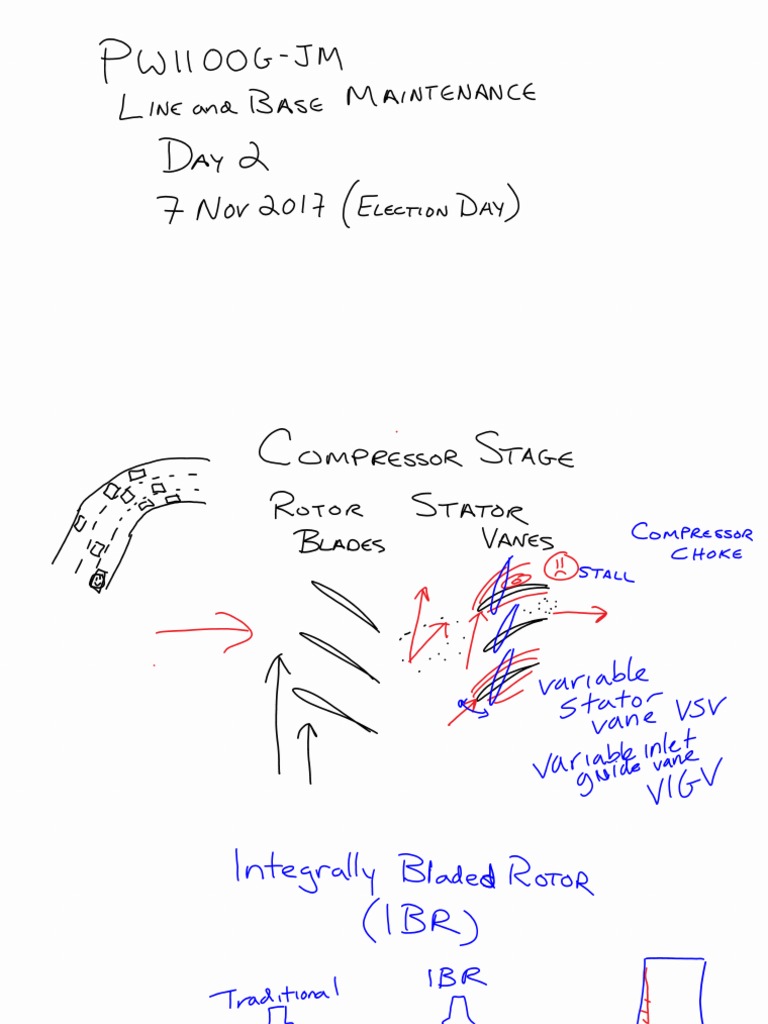 PW1100G-JM
LINE and BASE MAINTENANCE
DAY 2
7 NOV 2017 (ELECTION DAY)
COMPRESSOR STAGE
ROTOR
BLADES
STATOR
VANES
COMPRESSOR
CHOKE
STALL
α
variable
stator
vane VSV
variable inlet
guide vane
VIGV
Integrally Bladed ROTOR
(IBR)
Traditional
IBR